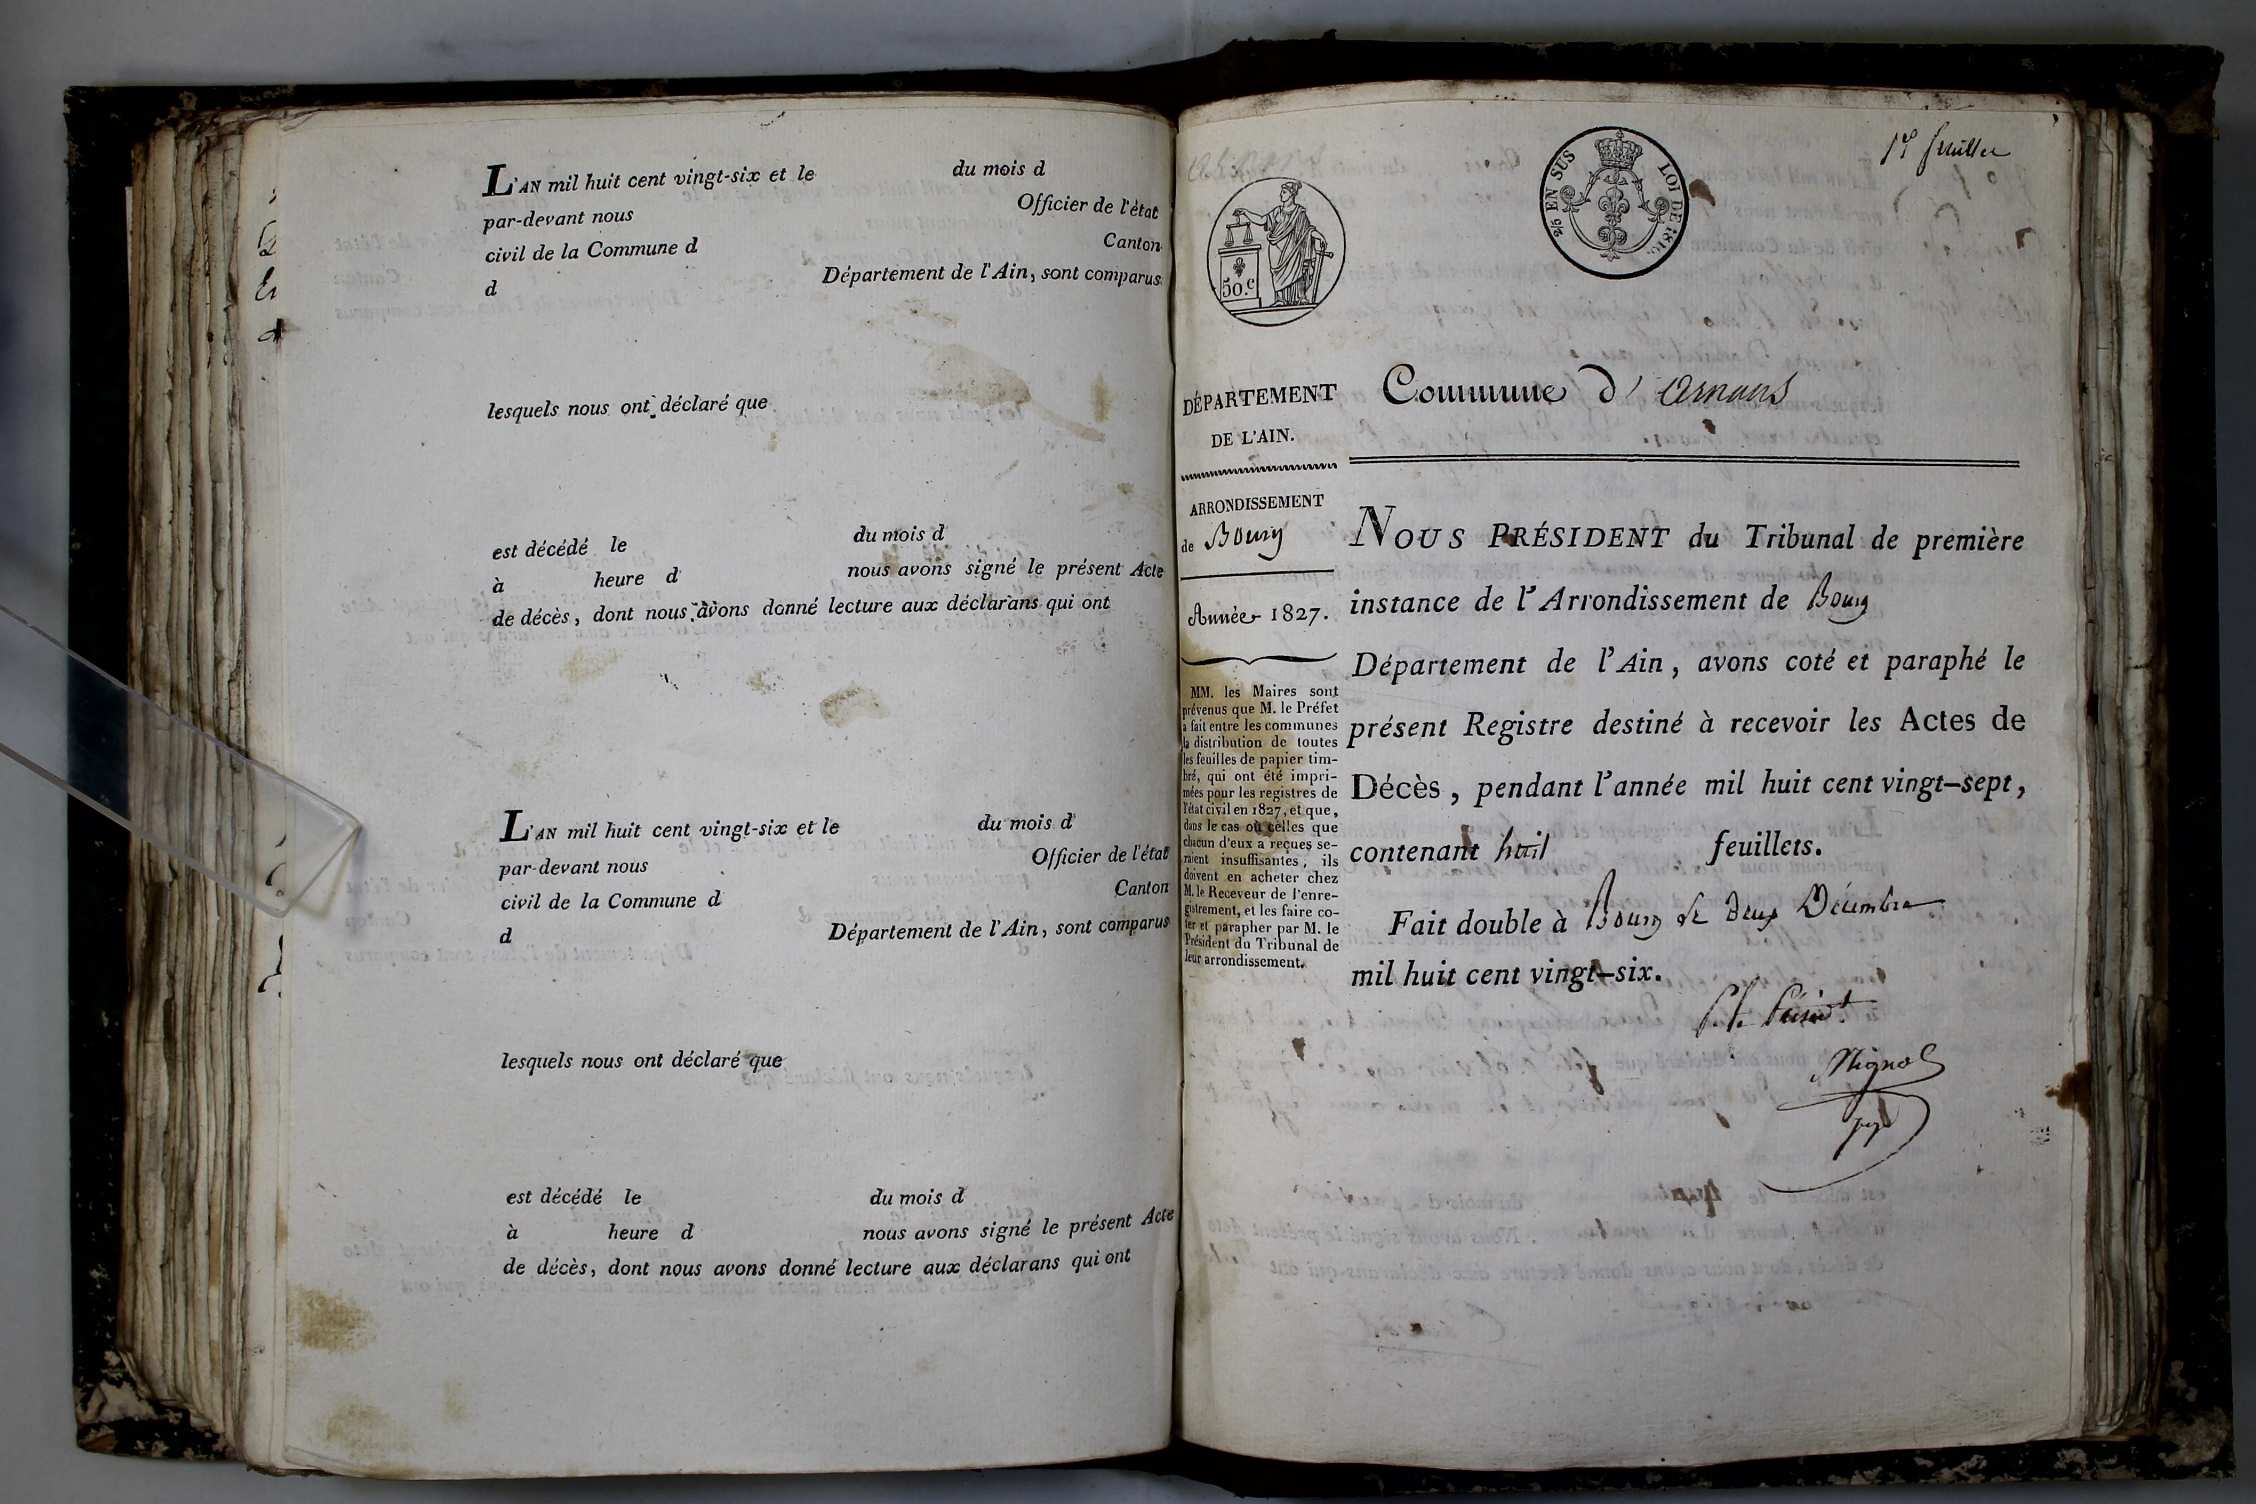 L'AN mil huit cent vingt-six et le du mois d
par-devant nous Officier de l'état
civil de la Commune d Canton
d Département de l'Ain, sont comparus
lesquels nous ont déclaré que
est décédé le du mois d
à heure d nous avons signé le présent Acte
de décès, dont nous avons donné lecture aux déclarans qui ont
L'AN mil huit cent vingt-six et le du mois d
par-devant nous Officier de l'état
civil de la Commune d Canton
d Département de l'Ain, sont comparus
lesquels nous ont déclaré que
est décédé le du mois d
à heure d nous avons signé le présent Acte
de décès, dont nous avons donné lecture aux déclarans qui ont
1er feuillet
50.c
EN SUS LOI DE 1816.
DÉPARTEMENT
DE L'AIN.
ARRONDISSEMENT
de Bourg
Année 1827.
MM. les Maires sont
prévenus que M. le Préfet
a fait entre les communes
la distribution de toutes
les feuilles de papier tim-
bré, qui ont été impri-
mées pour les registres de
l'état civil en 1827, et que,
dans le cas où celles que
chacun d'eux a reçues se-
raient insuffisantes, ils
doivent en acheter chez
M. le Receveur de l'enre-
gistrement, et les faire co-
ter et parapher par M. le
Président du Tribunal de
leur arrondissement.
Commune d'Arnans
NOUS PRÉSIDENT du Tribunal de première
instance de l'Arrondissement de Bourg
Département de l'Ain, avons coté et paraphé le
présent Registre destiné à recevoir les Actes de
Décès, pendant l'année mil huit cent vingt-sept,
contenant huit feuillets.
Fait double à Bourg le deux Décembre
mil huit cent vingt-six.